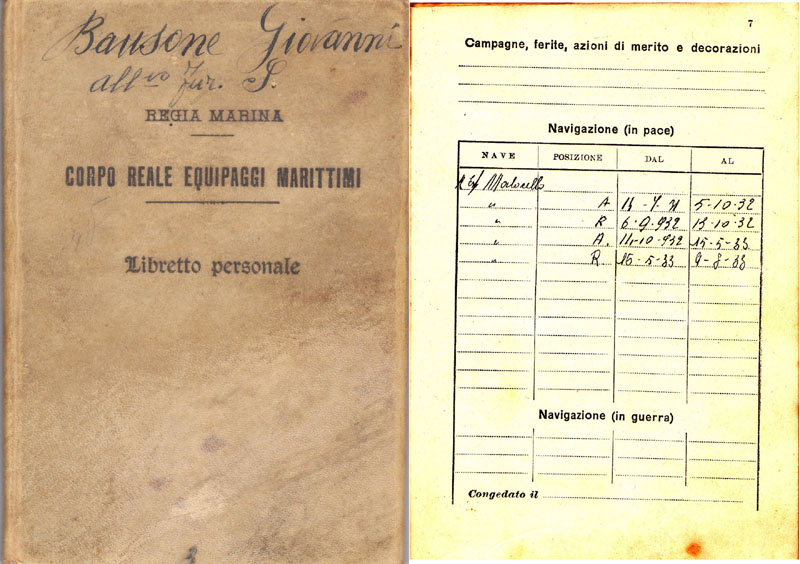 Bausone Giovanni
all
REGIA MARINA
CORPO REALE EQUIPAGGI MARITTIMI
Libretto personale
7
Campagne, ferite, azioni di merito e decorazioni
Navigazione (in pace)
NAVE POSIZIONE DAL AL
Malocello
" A 5-10-32
" R 6-9-932 13-10-32
" A. 15-5-33
" R. 16-5-33
Navigazione (in guerra)
Congedato il